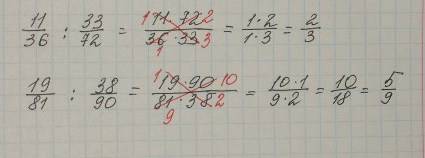 11/36 : 33/72 = 1 11 · 72 2 / 36 1 · 33 3 = 1·2/1·3 = 2/3
19/81 : 38/90 = 1 19 · 90 10 / 81 9 · 38 2 = 10·1/9·2 = 10/18 = 5/9